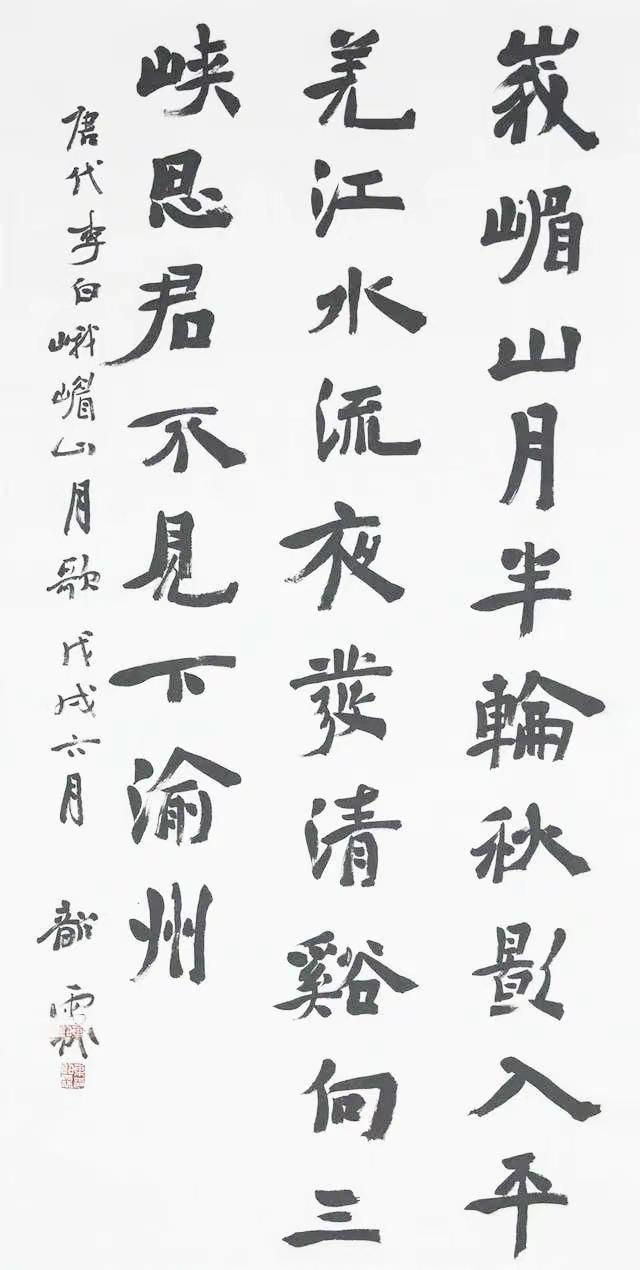 峩嵋山月半輪秋影入平
羗江水流夜發清谿向三
峽思君不見下渝州
唐代李白峨嵋山月歌戊戌六月